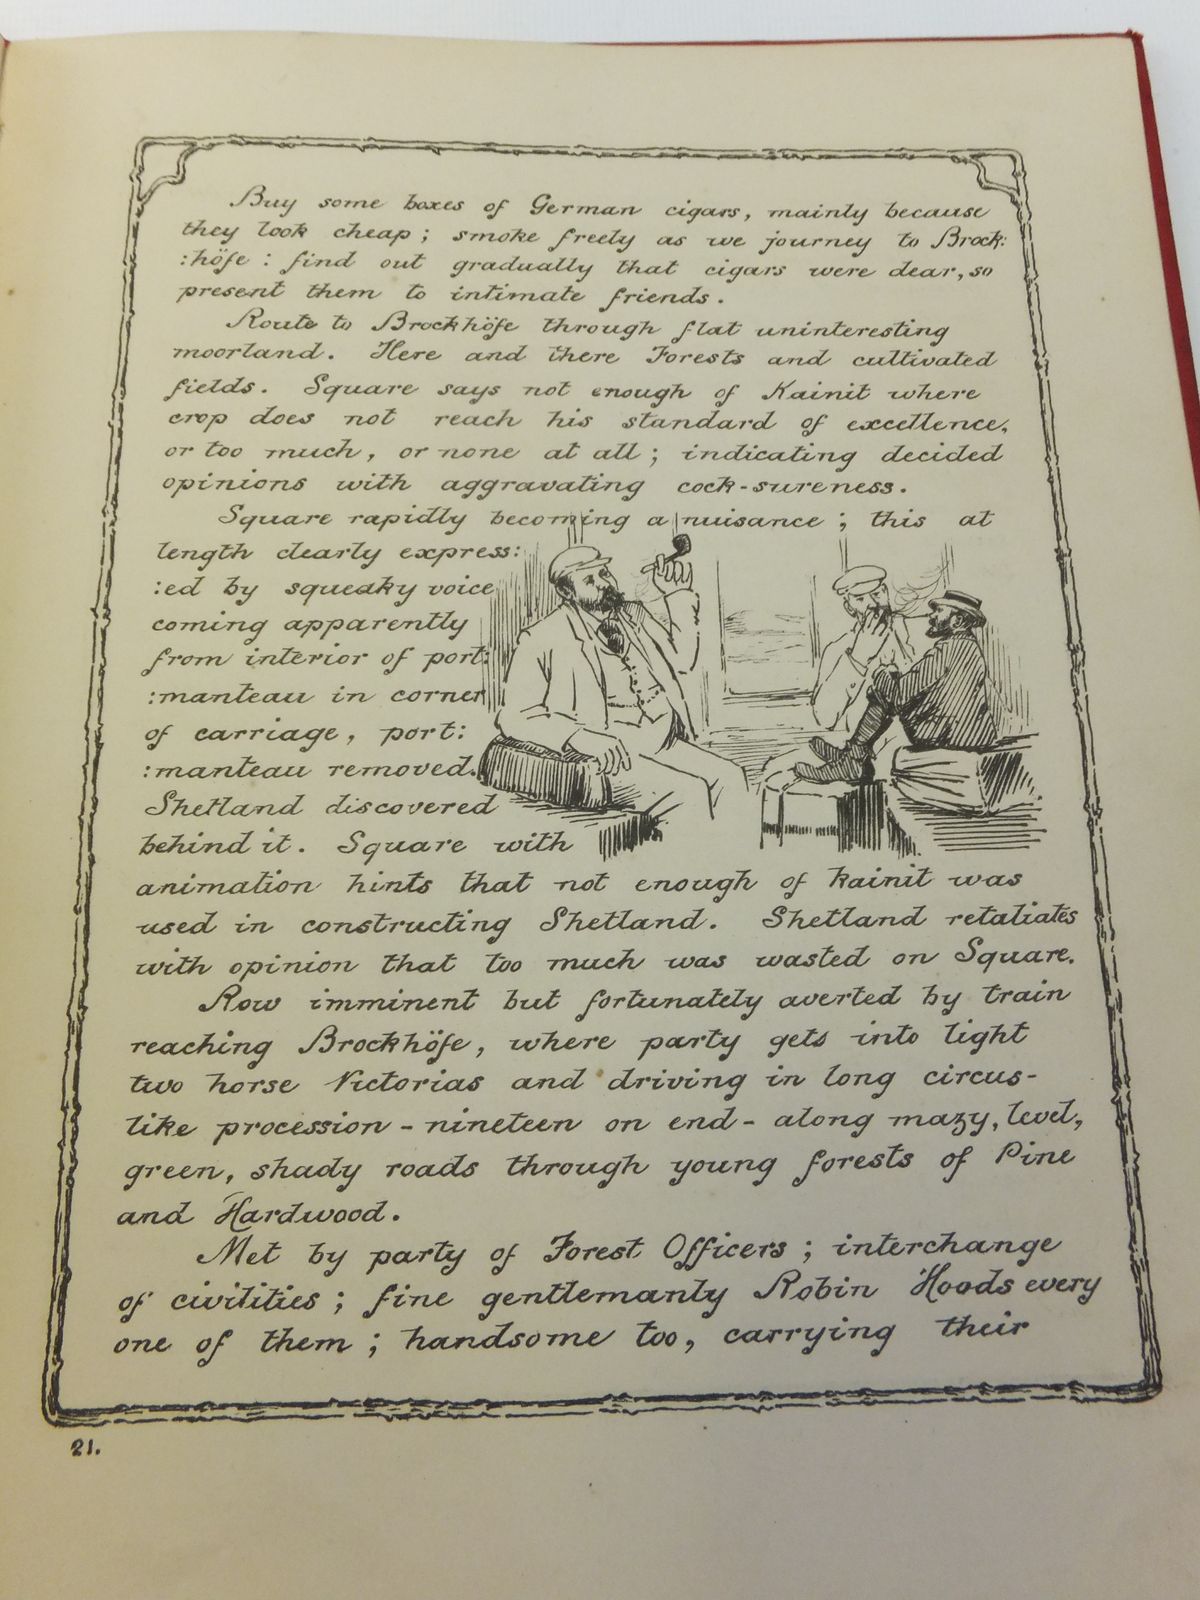 Buy some boxes of German cigars, mainly because
they look cheap; smoke freely as we journey to Brock:
:höfe: find out gradually that cigars were dear, so
present them to intimate friends.
Route to Brockhöfe through flat uninteresting
moorland. Here and there Forests and cultivated
fields. Square says not enough of Kainit where
crop does not reach his standard of excellence,
or too much, or none at all; indicating decided
opinions with aggravating cock-sureness.
Square rapidly becoming a nuisance; this at
length clearly express:
:ed by squeaky voice
coming apparently
from interior of port:
:manteau in corner
of carriage, port:
:manteau removed.
Shetland discovered
behind it. Square with
animation hints that not enough of kainit was
used in constructing Shetland. Shetland retaliates
with opinion that too much was wasted on Square.
Row imminent but fortunately averted by train
reaching Brockhöfe, where party gets into light
two horse Victorias and driving in long circus-
like procession - nineteen on end - along mazy, level,
green, shady roads through young forests of Pine
and Hardwood.
Met by party of Forest Officers; interchange
of civilities; fine gentlemanly Robin Hoods every
one of them; handsome too, carrying their
21.